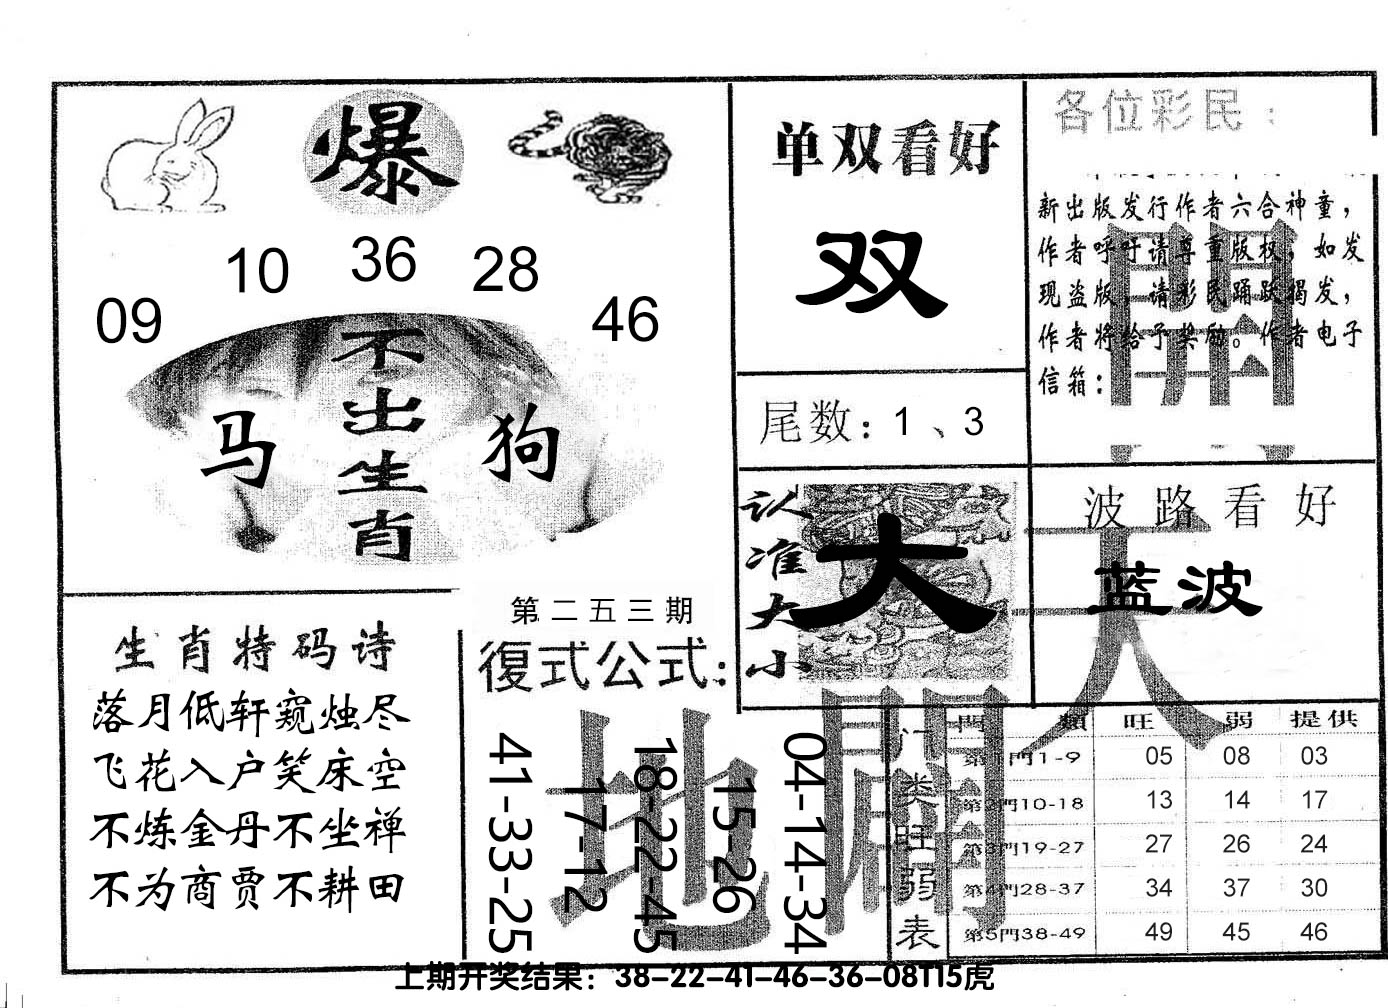 爆
09 10 36 28 46
不出生肖
马 狗
单双看好
双
尾数：1、3
各位彩民：
新出版发行作者六合神童，
作者呼吁请尊重版权，如发
现盗版，请彩民踊跃揭发，
作者将给予奖励。作者电子
信箱：
認准大小
大
波路看好
蓝波
天
開
生肖特码诗
落月低轩窥烛尽
飞花入户笑床空
不炼金丹不坐禅
不为商贾不耕田
第二五三期
復式公式：
41-33-25
17-12
18-22-45
15-26
04-14-34
地
開
门类旺弱表
門類 旺 弱 提供
第1門1-9 05 08 03
第2門10-18 13 14 17
第3門19-27 27 26 24
第4門28-37 34 37 30
第5門38-49 49 45 46
上期开奖结果：38-22-41-46-36-08T15虎